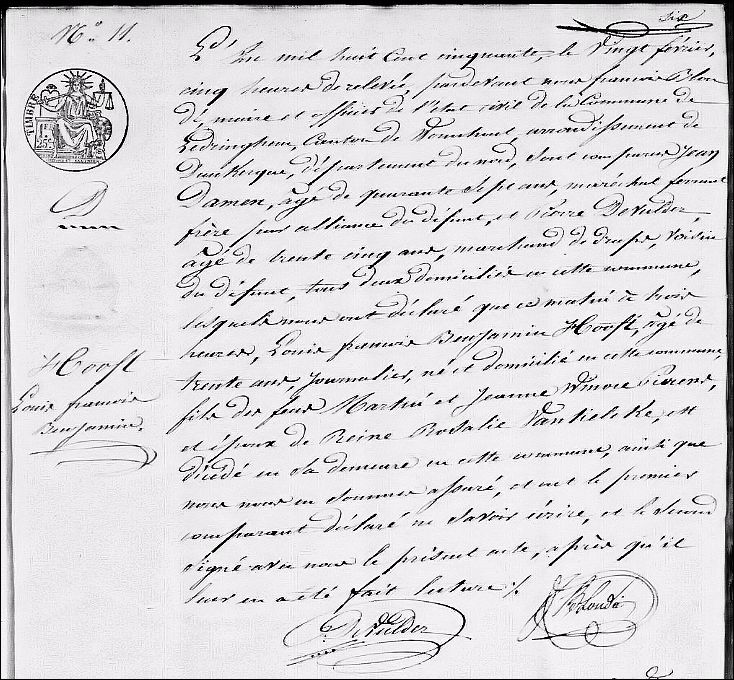 six
N.º 11.
L'An mil huit cent cinquante, le vingt février,
cinq heures de relevée, pardevant nous francois Blon
dé, maire et officier de l'état civil de la Commune de
Ledringhem, Canton de Wormhout, arrondissement de
Dunkerque, département du nord, sont comparus Jean
Damen, âgé de quarante sept ans, maréchal ferrant
frère par alliance du défunt, et Pierre DeVulder,
âgé de trente cinq ans, marchand de draps, voisin
du défunt, tous deux domiciliés en cette commune,
lesquels nous ont déclaré que ce matin à trois
heures, Louis francois Benjamin Hooft, âgé de
trente ans, journalier, né et domicilié en cette commune,
fils des feus Martin et Jeanne Pierens,
et époux de Reine Rosalie Vankeleke, est
décédé en sa demeure en cette commune, ainsi que
nous nous en sommes assuré, et ont le premier
comparant déclaré ne savoir écrire, et le second
signé avec nous le présent acte, après qu'il
leur en a été fait lecture ./.
TIMBRE
1f
25c
D
Hooft
Louis francois
Benjamin.
P. DeVulder
Blondé